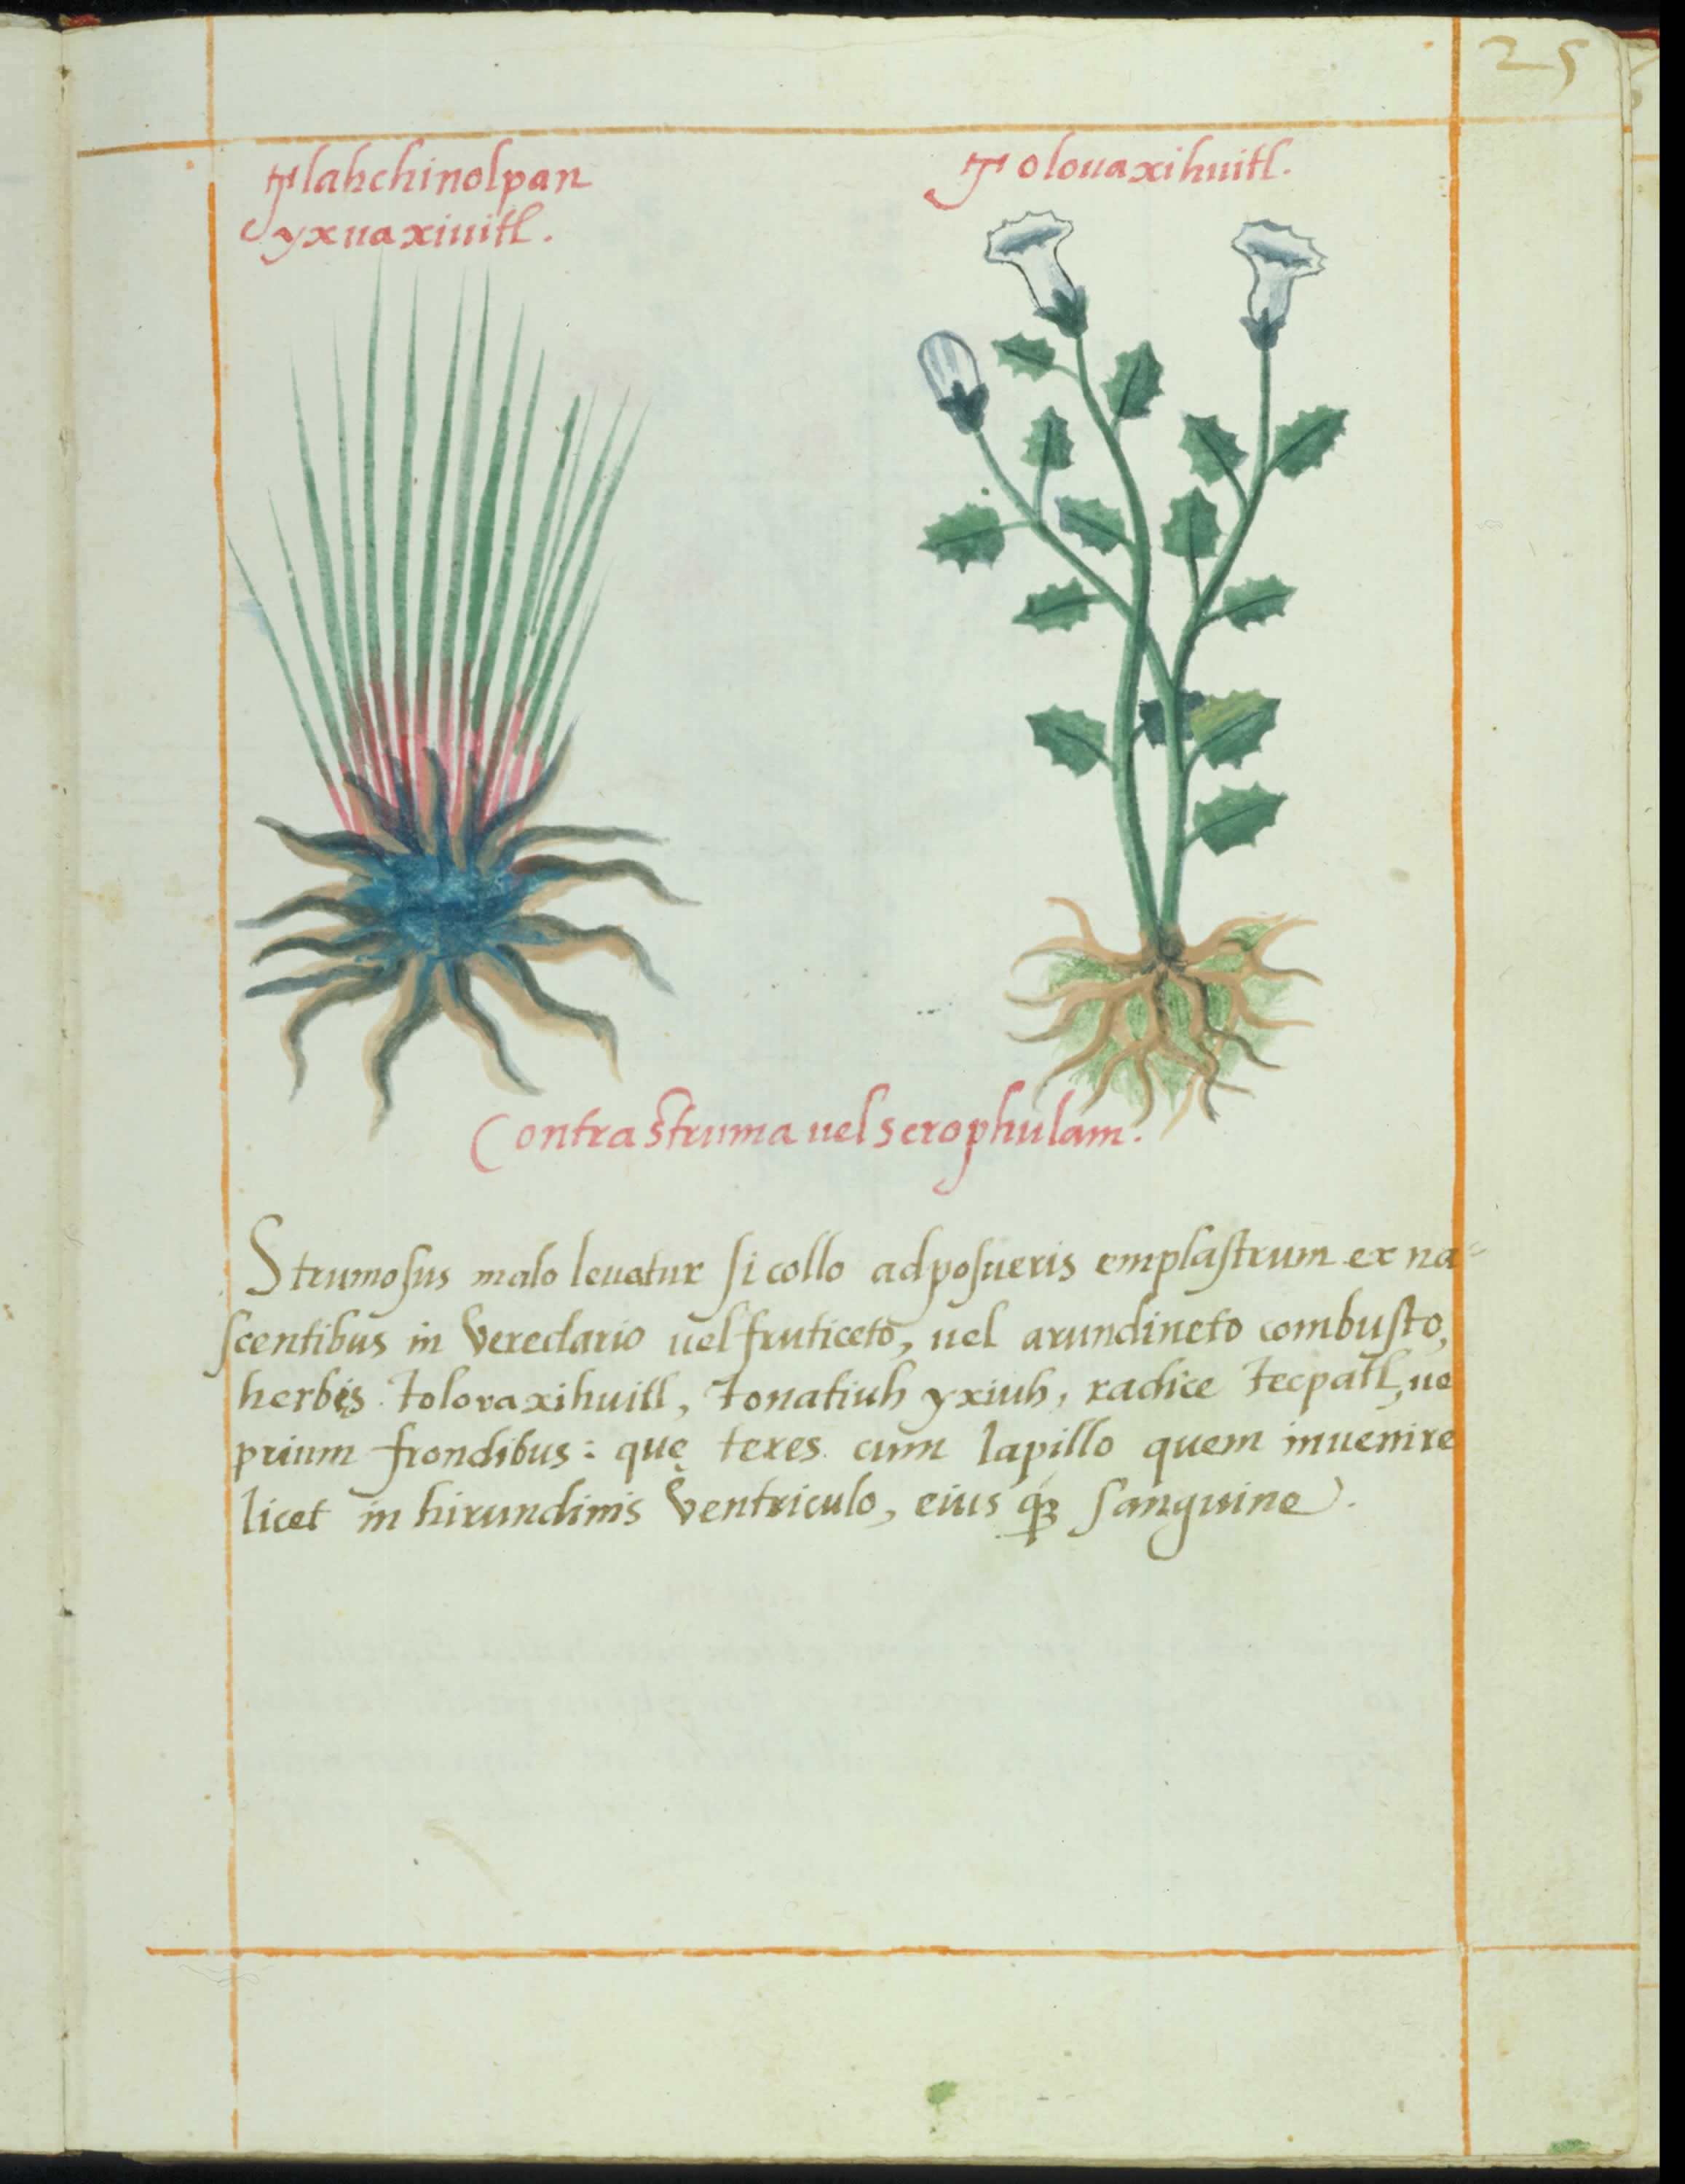 25
Tlahchinolpan
yxuaxiuitl.
Tolouaxihuitl.
Contra struma uel scrophulam.
Strumosus malo leuatur si collo adposueris emplastrum ex na=
scentibus in Vereclario uel fruticeto, uel arundineto combusto,
herbis tolovaxihuitl, tonatiuh yxiuh, radice tecpatl, ue
prium frondibus: quę teres cum lapillo quem inuenire
licet in hirundinis Ventriculo, eius qꝫ sanguine.